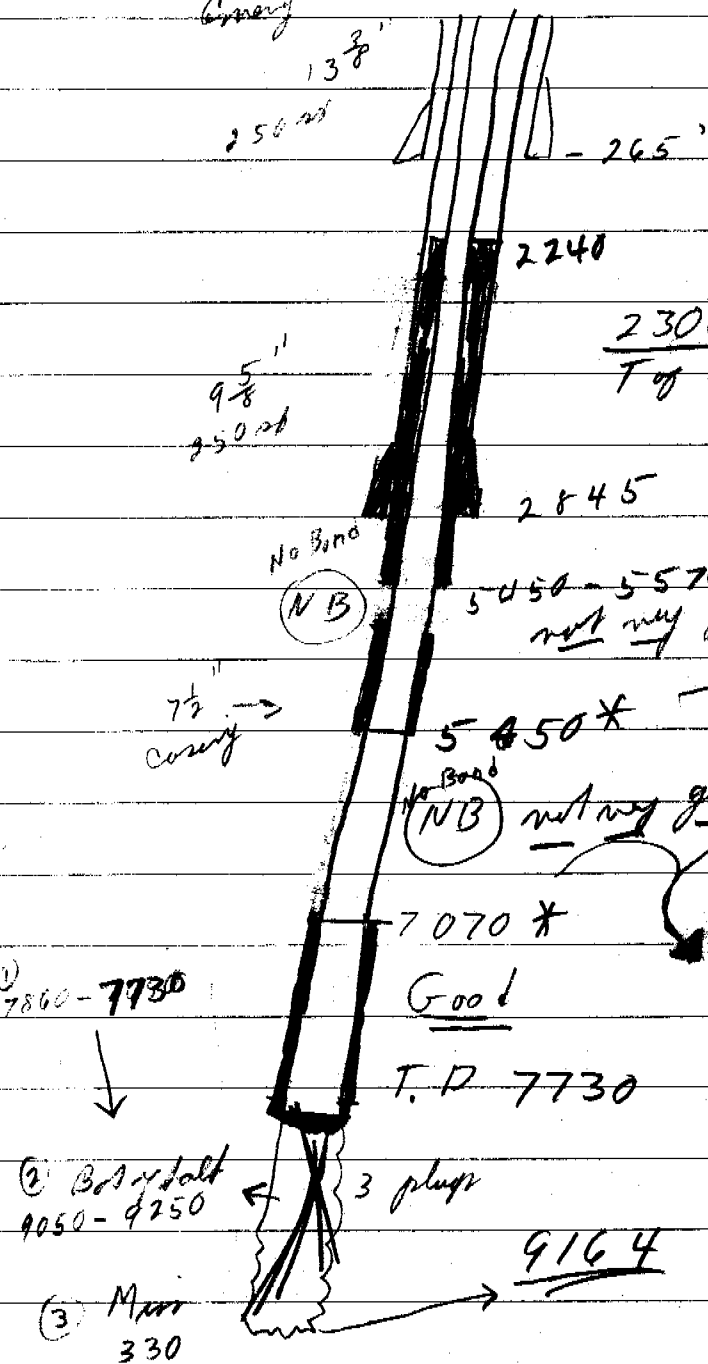 13 3/8"
250 sd
- 265'
2240
230
T of
9 5/8"
250 sd
2845
No Bond
NB
5450-557
not very
7 1/2" →
Casing
5450*
No Bond
NB not very g
7070*
① 7860-7730
Good
T.D 7730
② Bot y Salt
9050-9250
3 plugs
9164
③ Miss
330